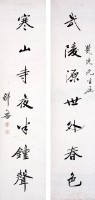 武陵源世外春色
寒山寺夜半鐘聲